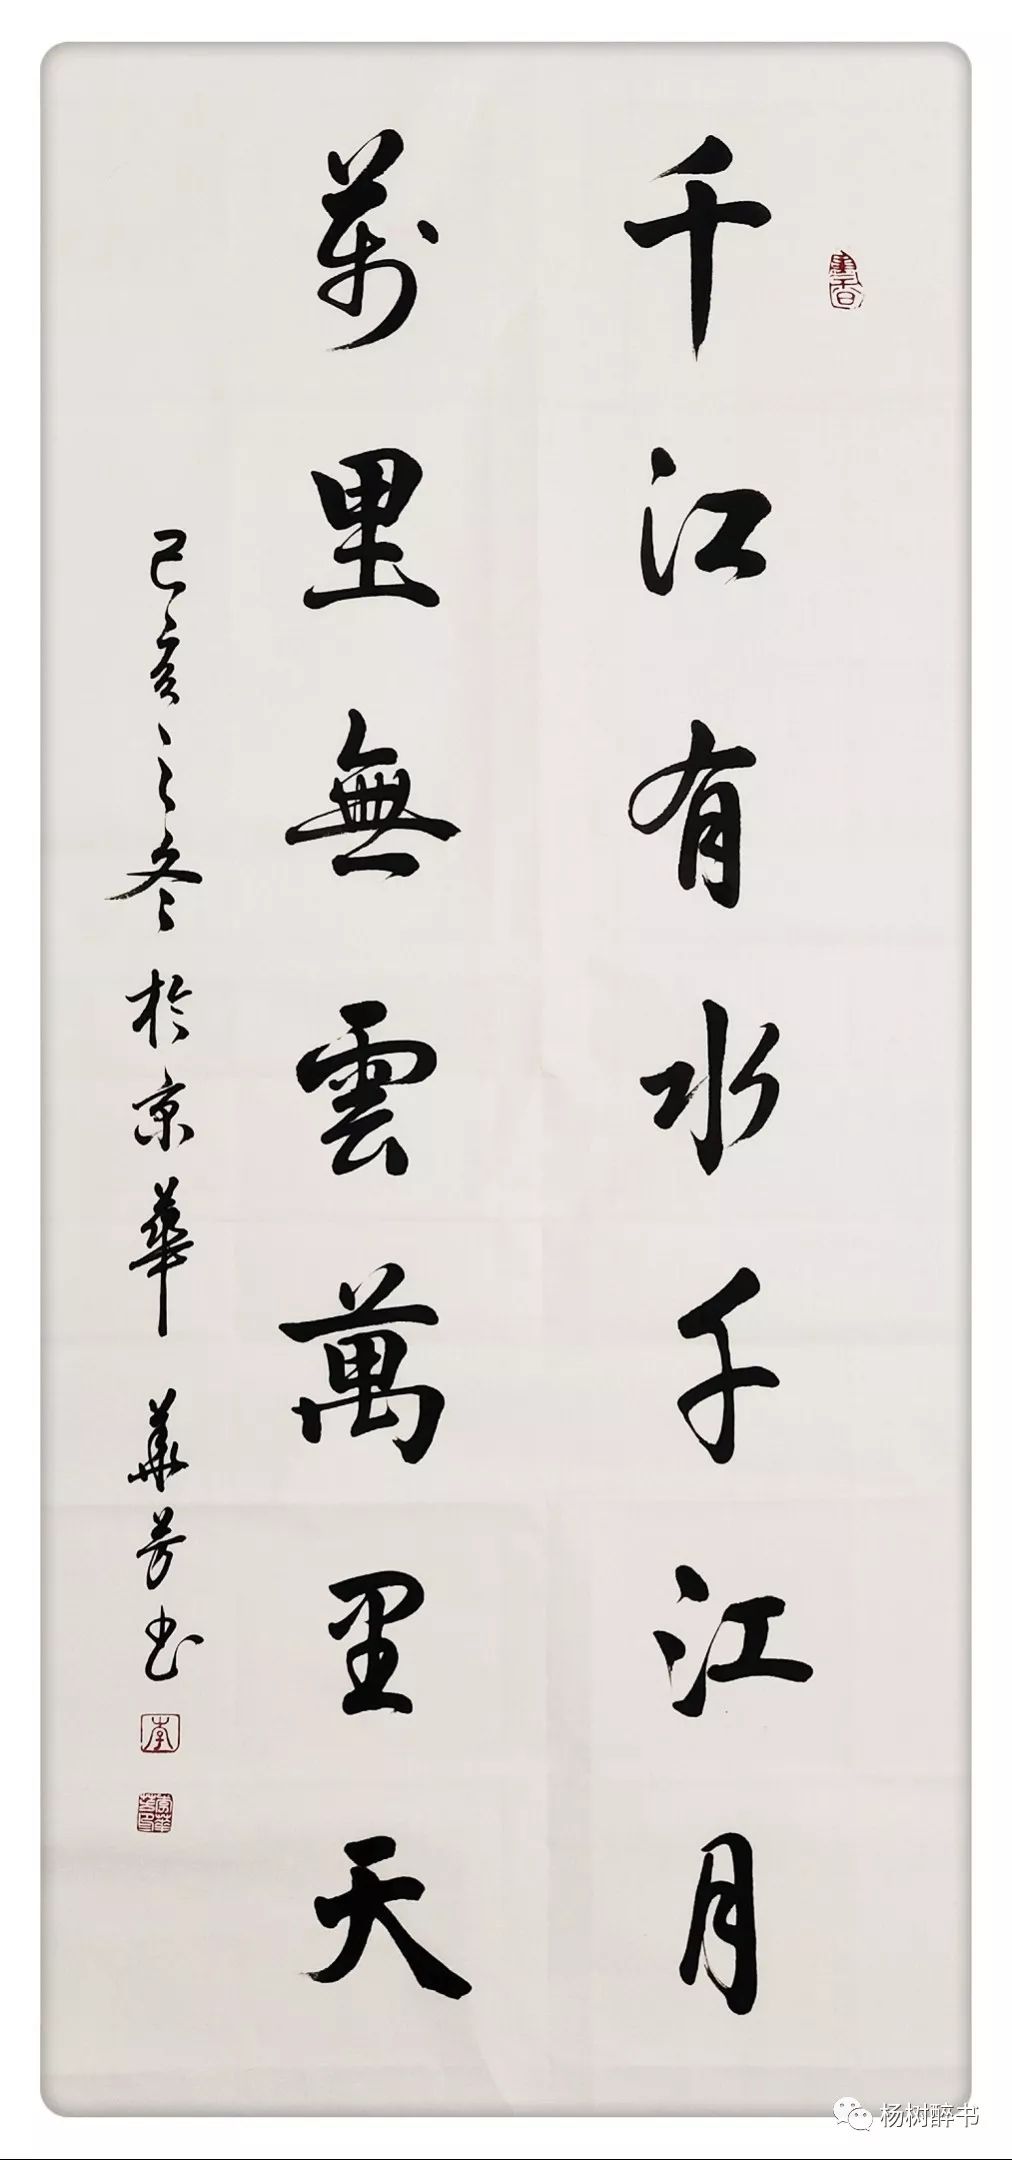 千江有水千江月
萬里無雲萬里天
己亥之冬於京華 華芳书
書香
李
杨树醉书